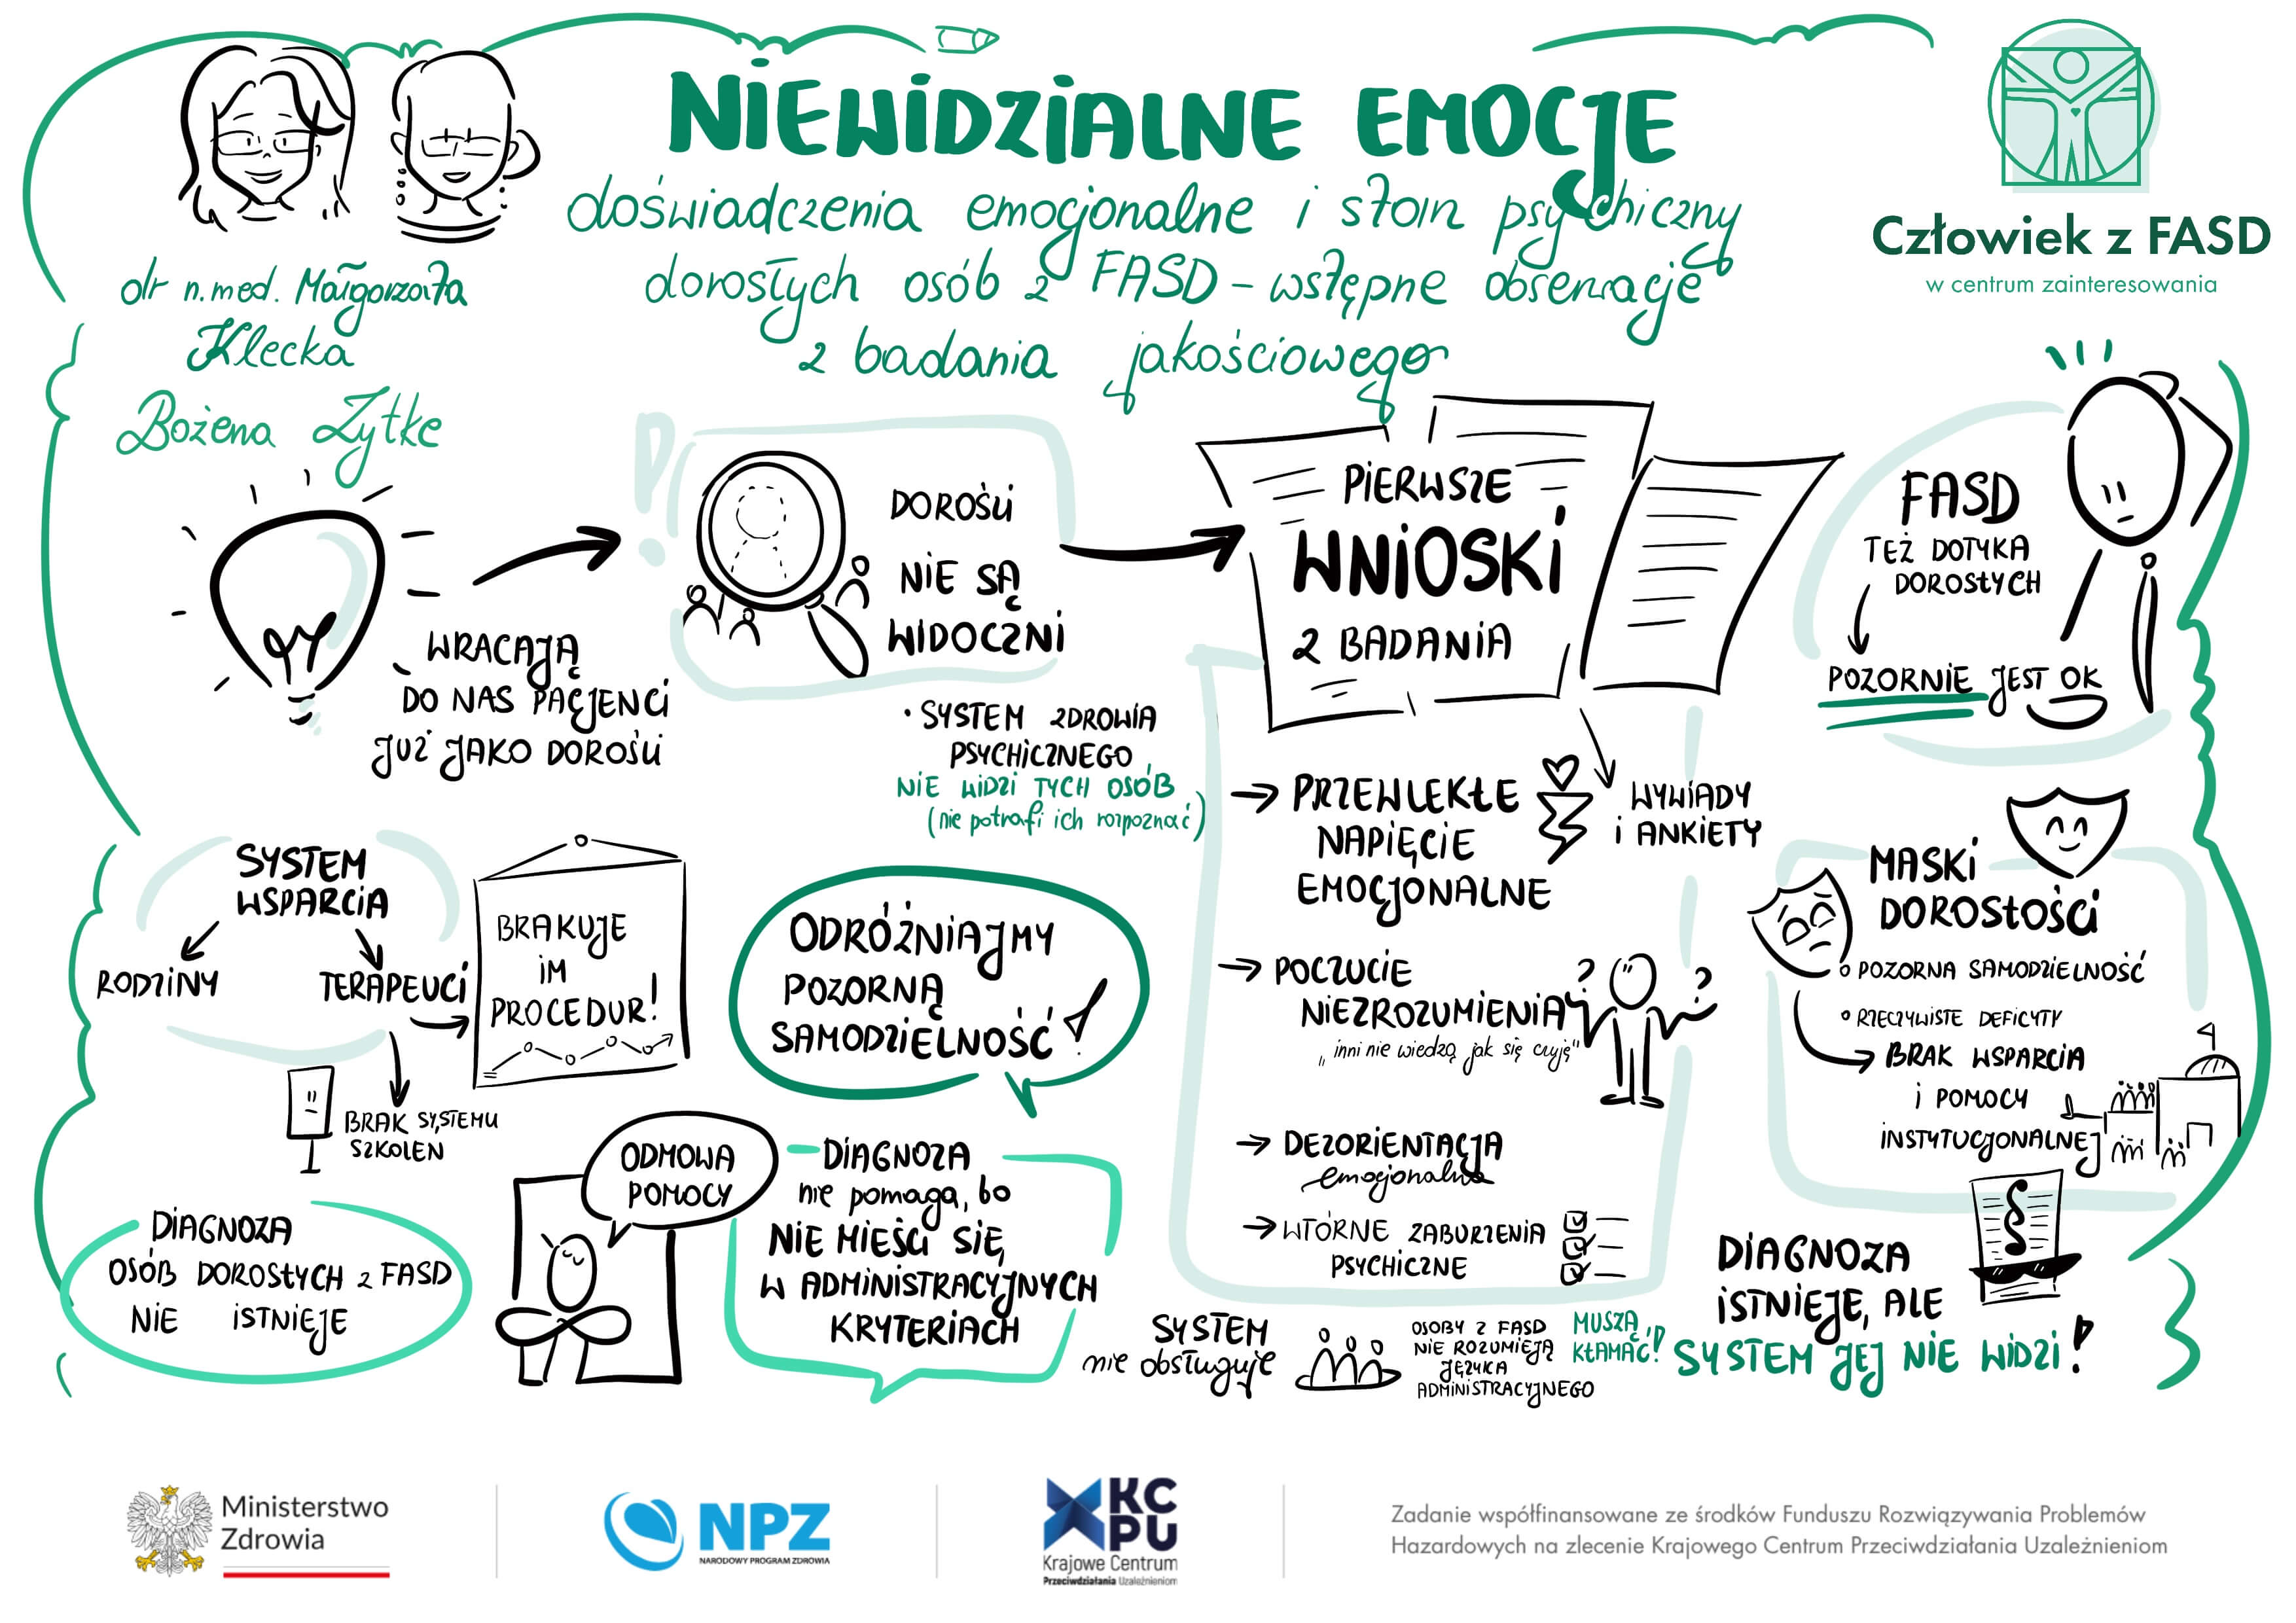 NIEWIDZIALNE EMOCJE
doświadczenia emocjonalne i stan psychiczny
dorosłych osób z FASD – wstępne obserwacje
z badania jakościowego
dr n. med. Małgorzata
Klecka
Bożena Żytke
Człowiek z FASD
w centrum zainteresowania
WRACAJĄ
DO NAS PACJENCI
JUŻ JAKO DOROŚLI
DOROŚLI
NIE SĄ
WIDOCZNI
• SYSTEM ZDROWIA
PSYCHICZNEGO
NIE WIDZI TYCH OSÓB
(nie potrafi ich rozpoznać)
PIERWSZE
WNIOSKI
Z BADANIA
WYWIADY
i ANKIETY
→ PRZEWLEKŁE
NAPIĘCIE
EMOCJONALNE
→ POCZUCIE
NIEZROZUMIENIA
„inni nie wiedzą jak się czuję"
? ?
→ DEZORIENTACJA
emocjonalna
→ WTÓRNE ZABURZENIA
PSYCHICZNE
FASD
TEŻ DOTYKA
DOROSŁYCH
POZORNIE JEST OK
MASKI
DOROSŁOŚCI
o POZORNA SAMODZIELNOŚĆ
o RZECZYWISTE DEFICYTY
BRAK WSPARCIA
i POMOCY
INSTYTUCJONALNEJ
SYSTEM
WSPARCIA
RODZINY
TERAPEUCI
BRAKUJE
IM
PROCEDUR!
BRAK SYSTEMU
SZKOLEŃ
DIAGNOZA
OSÓB DOROSŁYCH z FASD
NIE ISTNIEJE
ODRÓŻNIAJMY
POZORNĄ
SAMODZIELNOŚĆ!
ODMOWA
POMOCY
DIAGNOZA
nie pomaga, bo
NIE MIEŚCI SIĘ
W ADMINISTRACYJNYCH
KRYTERIACH
SYSTEM
nie obsługuje
OSOBY Z FASD
NIE ROZUMIEJĄ
JĘZYKA
ADMINISTRACYJNEGO
MUSZĄ
KŁAMAĆ!
§
DIAGNOZA
ISTNIEJE, ALE
SYSTEM JEJ NIE WIDZI!
Ministerstwo
Zdrowia
NPZ
NARODOWY PROGRAM ZDROWIA
KC
PU
Krajowe Centrum
Przeciwdziałania Uzależnieniom
Zadanie współfinansowane ze środków Funduszu Rozwiązywania Problemów
Hazardowych na zlecenie Krajowego Centrum Przeciwdziałania Uzależnieniom